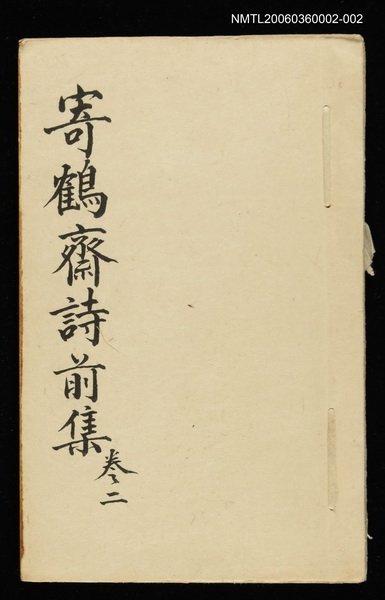 NMTL20060360002-002
寄鶴齋詩前集
卷二